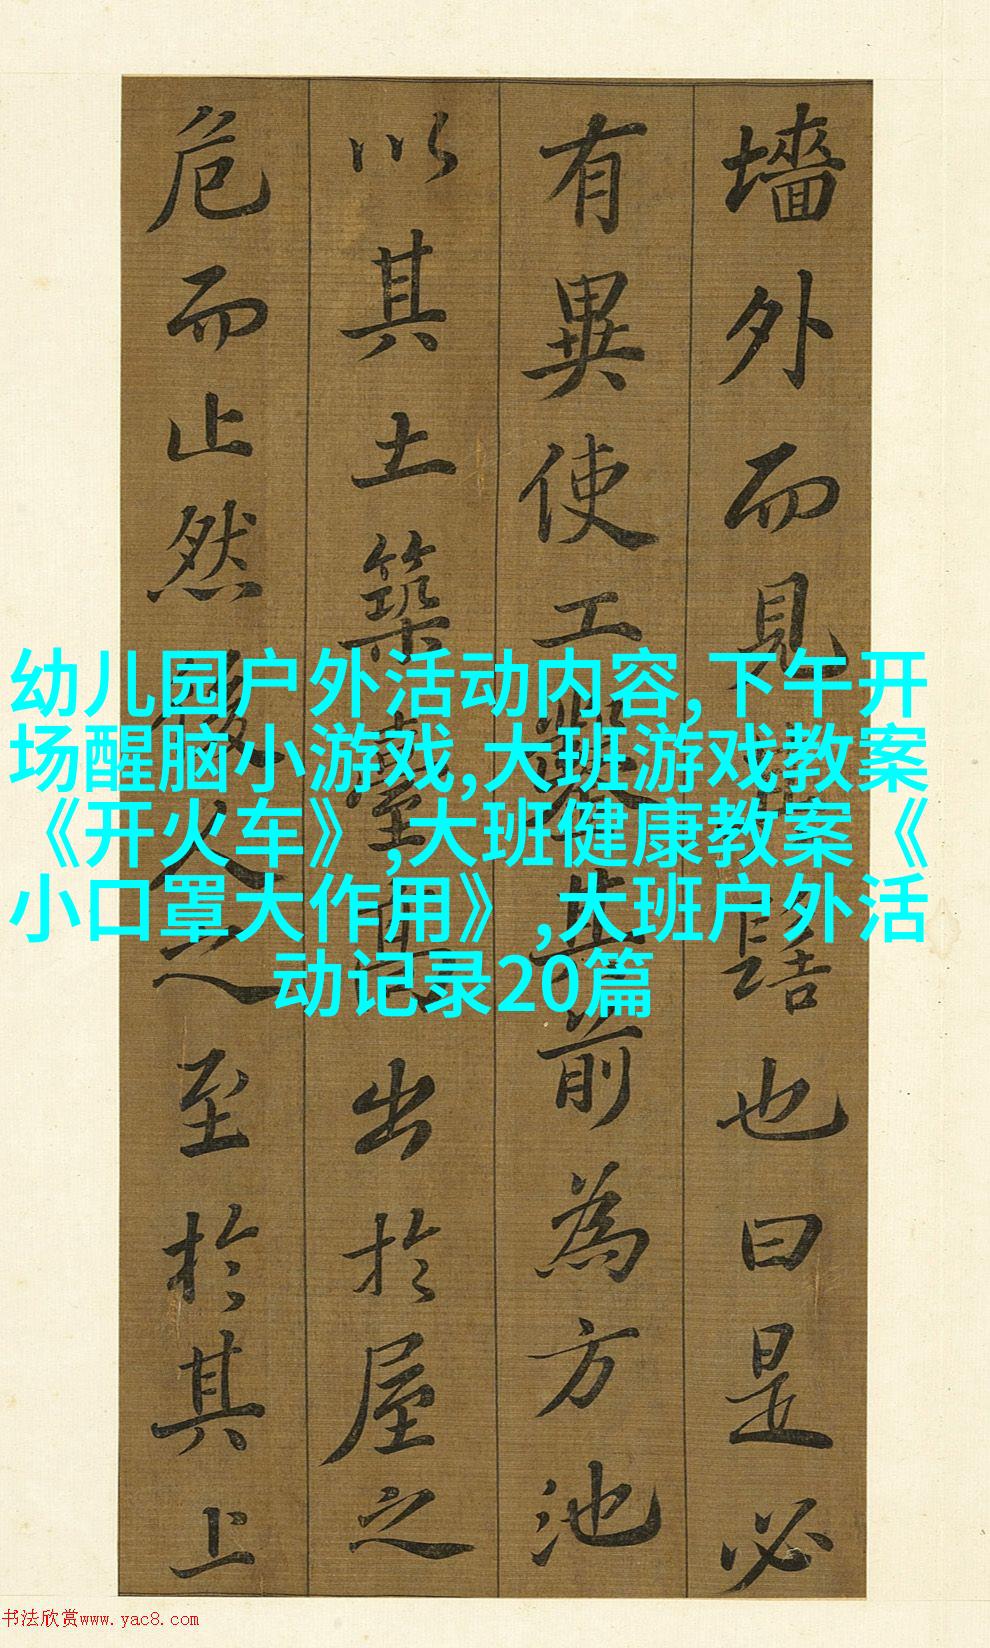 墻外而見其髻也曰是必
有異使工鑿其前為方池
以其土築臺高出於屋之
危而止然後人之至於其上
幼儿园户外活动内容,下午开
场醒脑小游戏,大班游戏教案
《开火车》,大班健康教案《
小口罩大作用》,大班户外活
动记录20篇
书法欣赏www.yac8.com